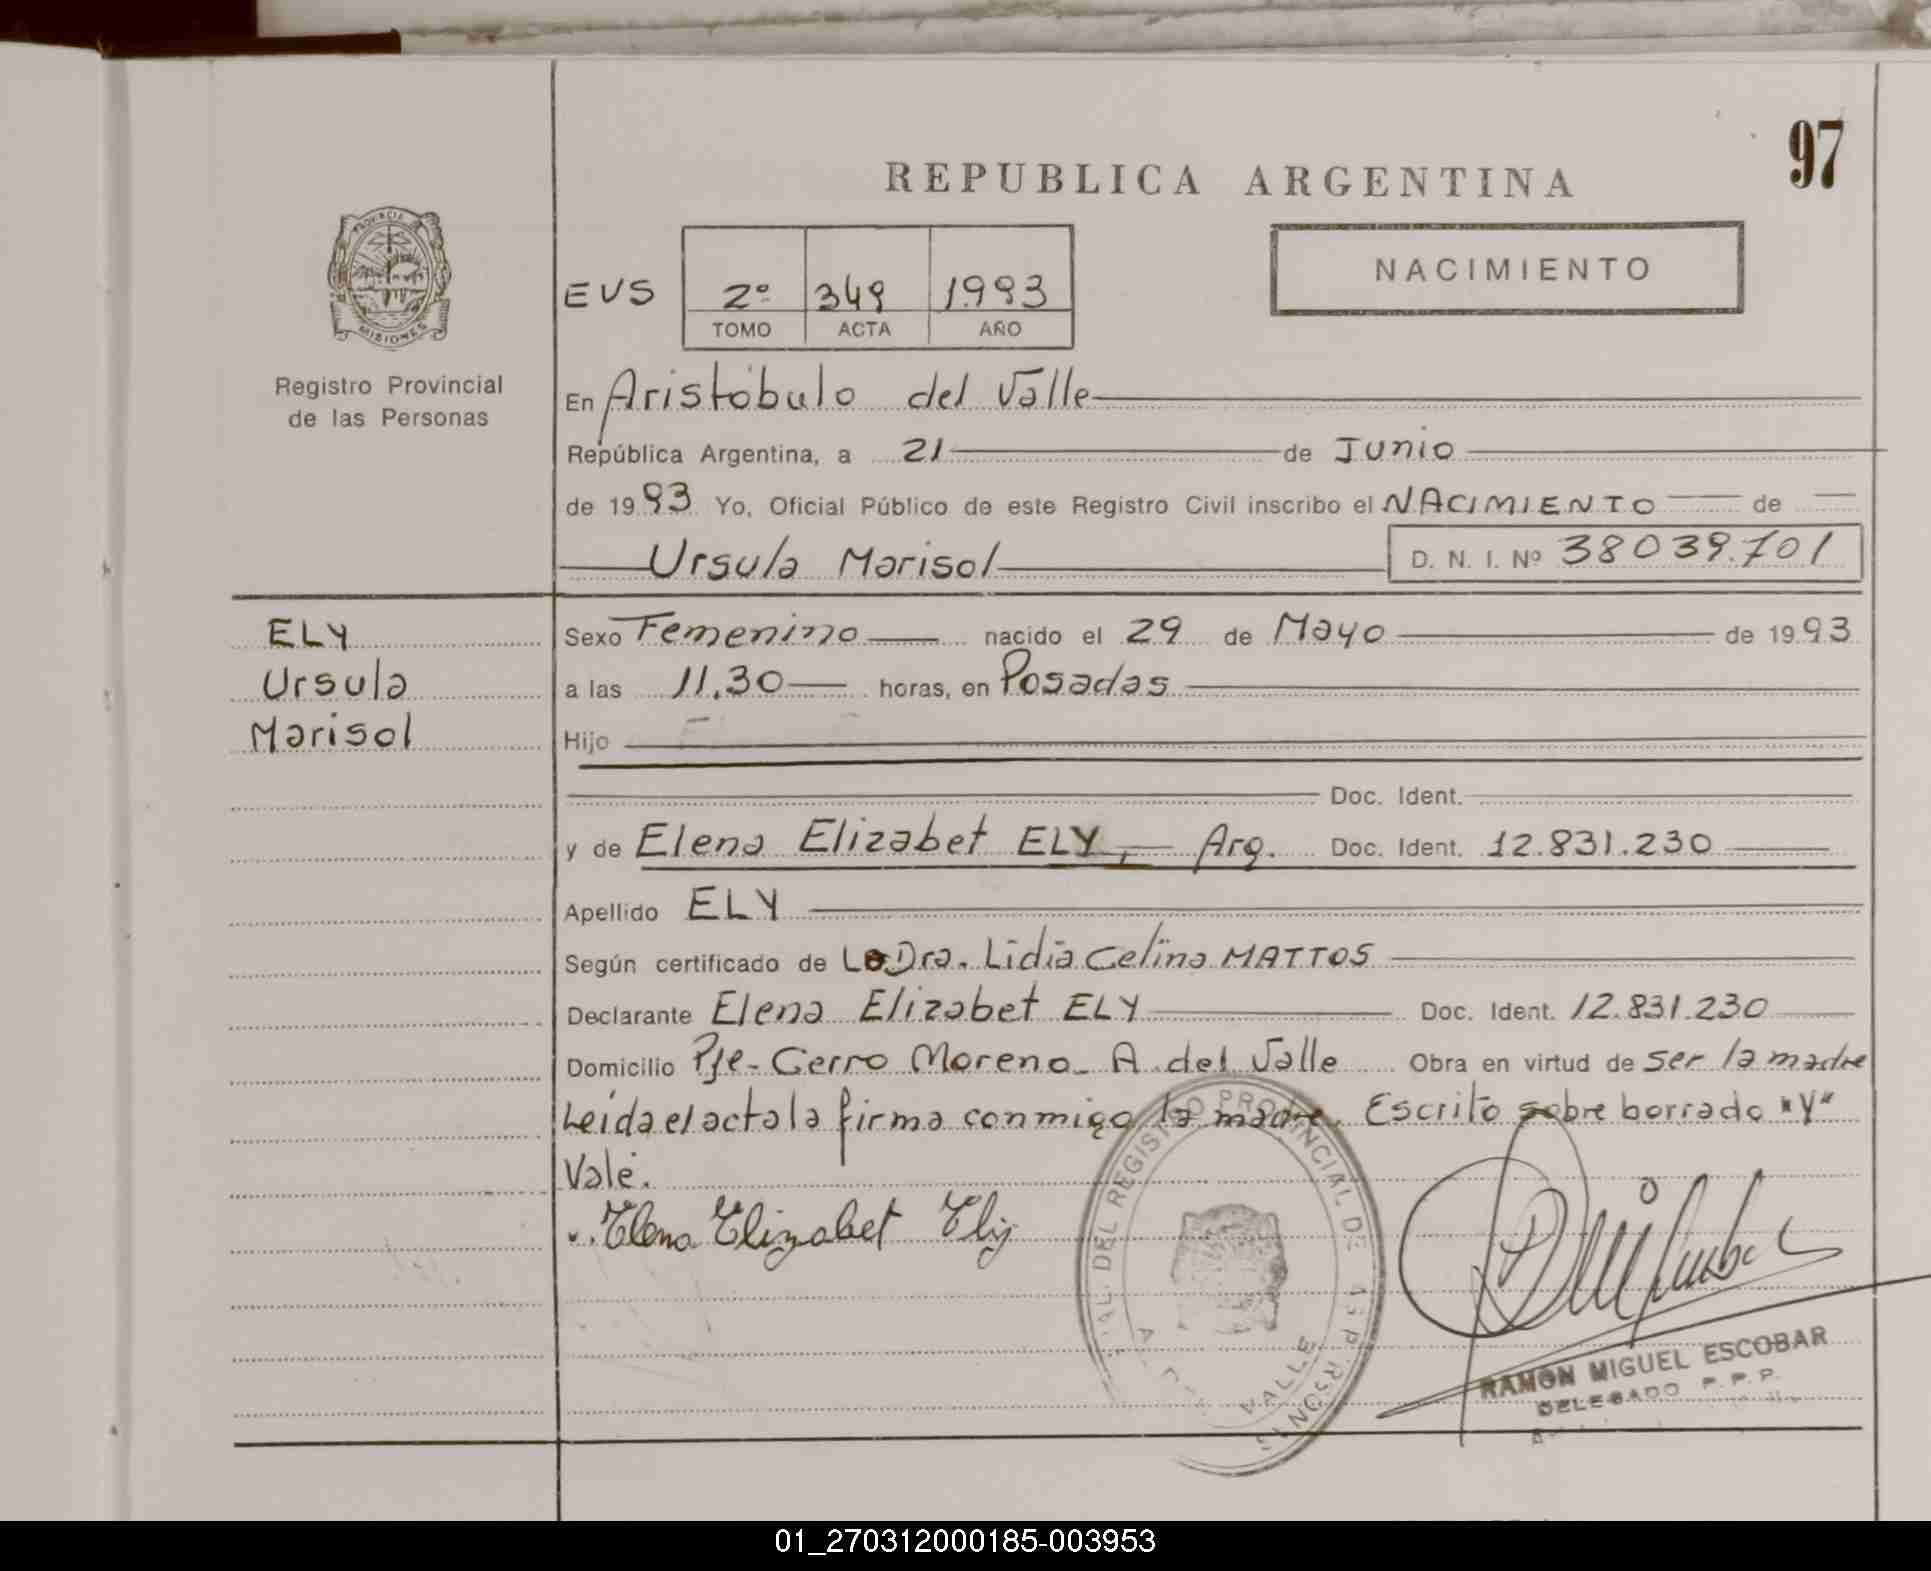 97
REPUBLICA ARGENTINA
PROVINCIA
MISIONES
Registro Provincial
de las Personas
EVS
2º 349 1993
TOMO ACTA AÑO
NACIMIENTO
En Aristóbulo del Valle
República Argentina, a 21 de Junio
de 1993 Yo, Oficial Público de este Registro Civil inscribo el NACIMIENTO de
Ursula Marisol D. N. I. Nº 38039.701
ELY
Ursula
Marisol
Sexo Femenino nacido el 29 de Mayo de 1993
a las 11.30 horas, en Posadas
Hijo
Doc. Ident.
y de Elena Elizabet ELY, Arg. Doc. Ident. 12.831.230
Apellido ELY
Según certificado de La Dra. Lidia Celina MATTOS
Declarante Elena Elizabet ELY Doc. Ident. 12.831.230
Domicilio Pje- Cerro Moreno- A. del Valle Obra en virtud de ser la madre
Leída el acta la firma conmigo la madre. Escrito sobre borrado "Y"
Vale.
Elena Elizabet Ely
DEL REGISTRO PROVINCIAL DE
VALLE
RAMON MIGUEL ESCOBAR
DELEGADO P. P. P.
01_270312000185-003953